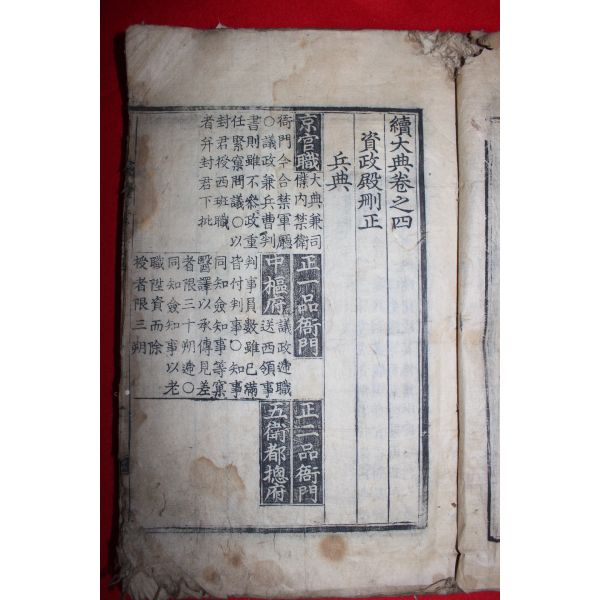 續大典卷之四
資政殿刪正
兵典
京官職
大典兼司
僕內禁衛
衙門今合禁軍廳
○議政兼兵曹判
書則雖不參政重
任緊窠問議○以
封君授西班職
者幷封君下批
正一品衙門
中樞府
議政遞職
送西領事
判事員數雖已滿
皆付判事○知事
同知僉知事等窠
醫譯以承傳見差
者限三十朔遞○
同知僉知事以老
職陞資而除
授者限三朔
正二品衙門
五衛都摠府